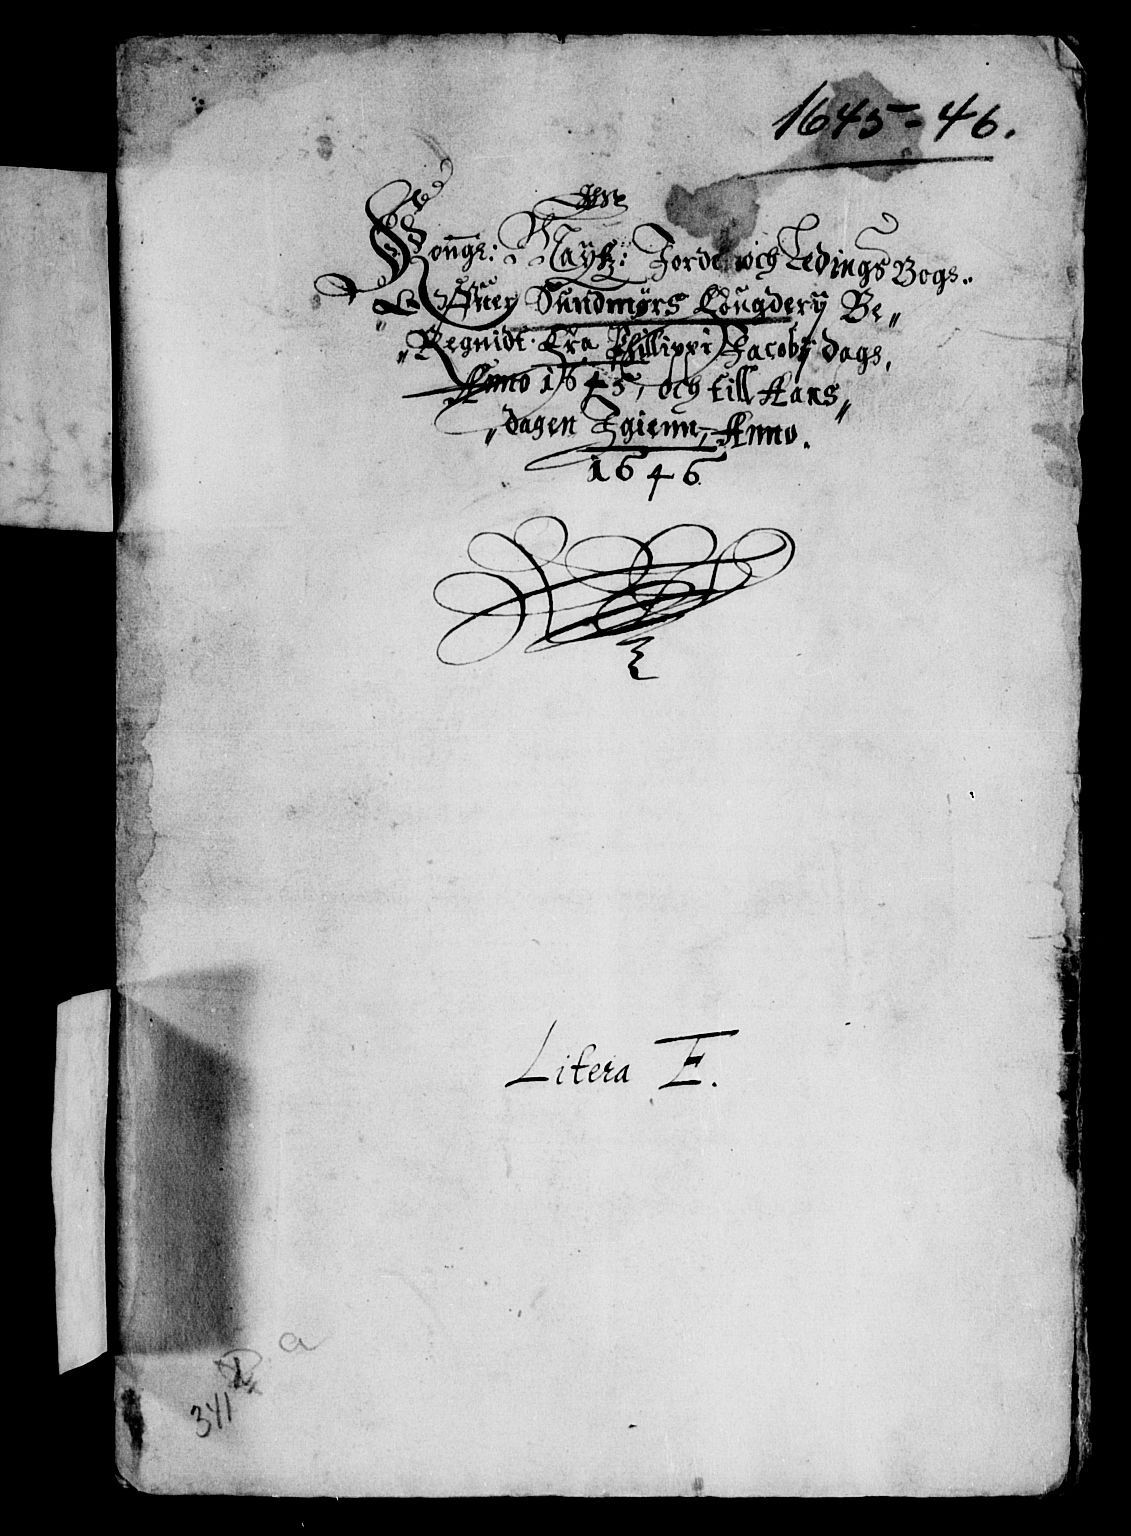 1645-46.
Kongs: Mayts: Jorde och Ledings Bogs..
Offuer Sundmørs Lougderij Be„
„Regnidt. Fra Phillippi Jacobj dags,
Anno 1645, och till Aars„
„dagen Jgienn, Anno.
1646.
Litera E.
a
341